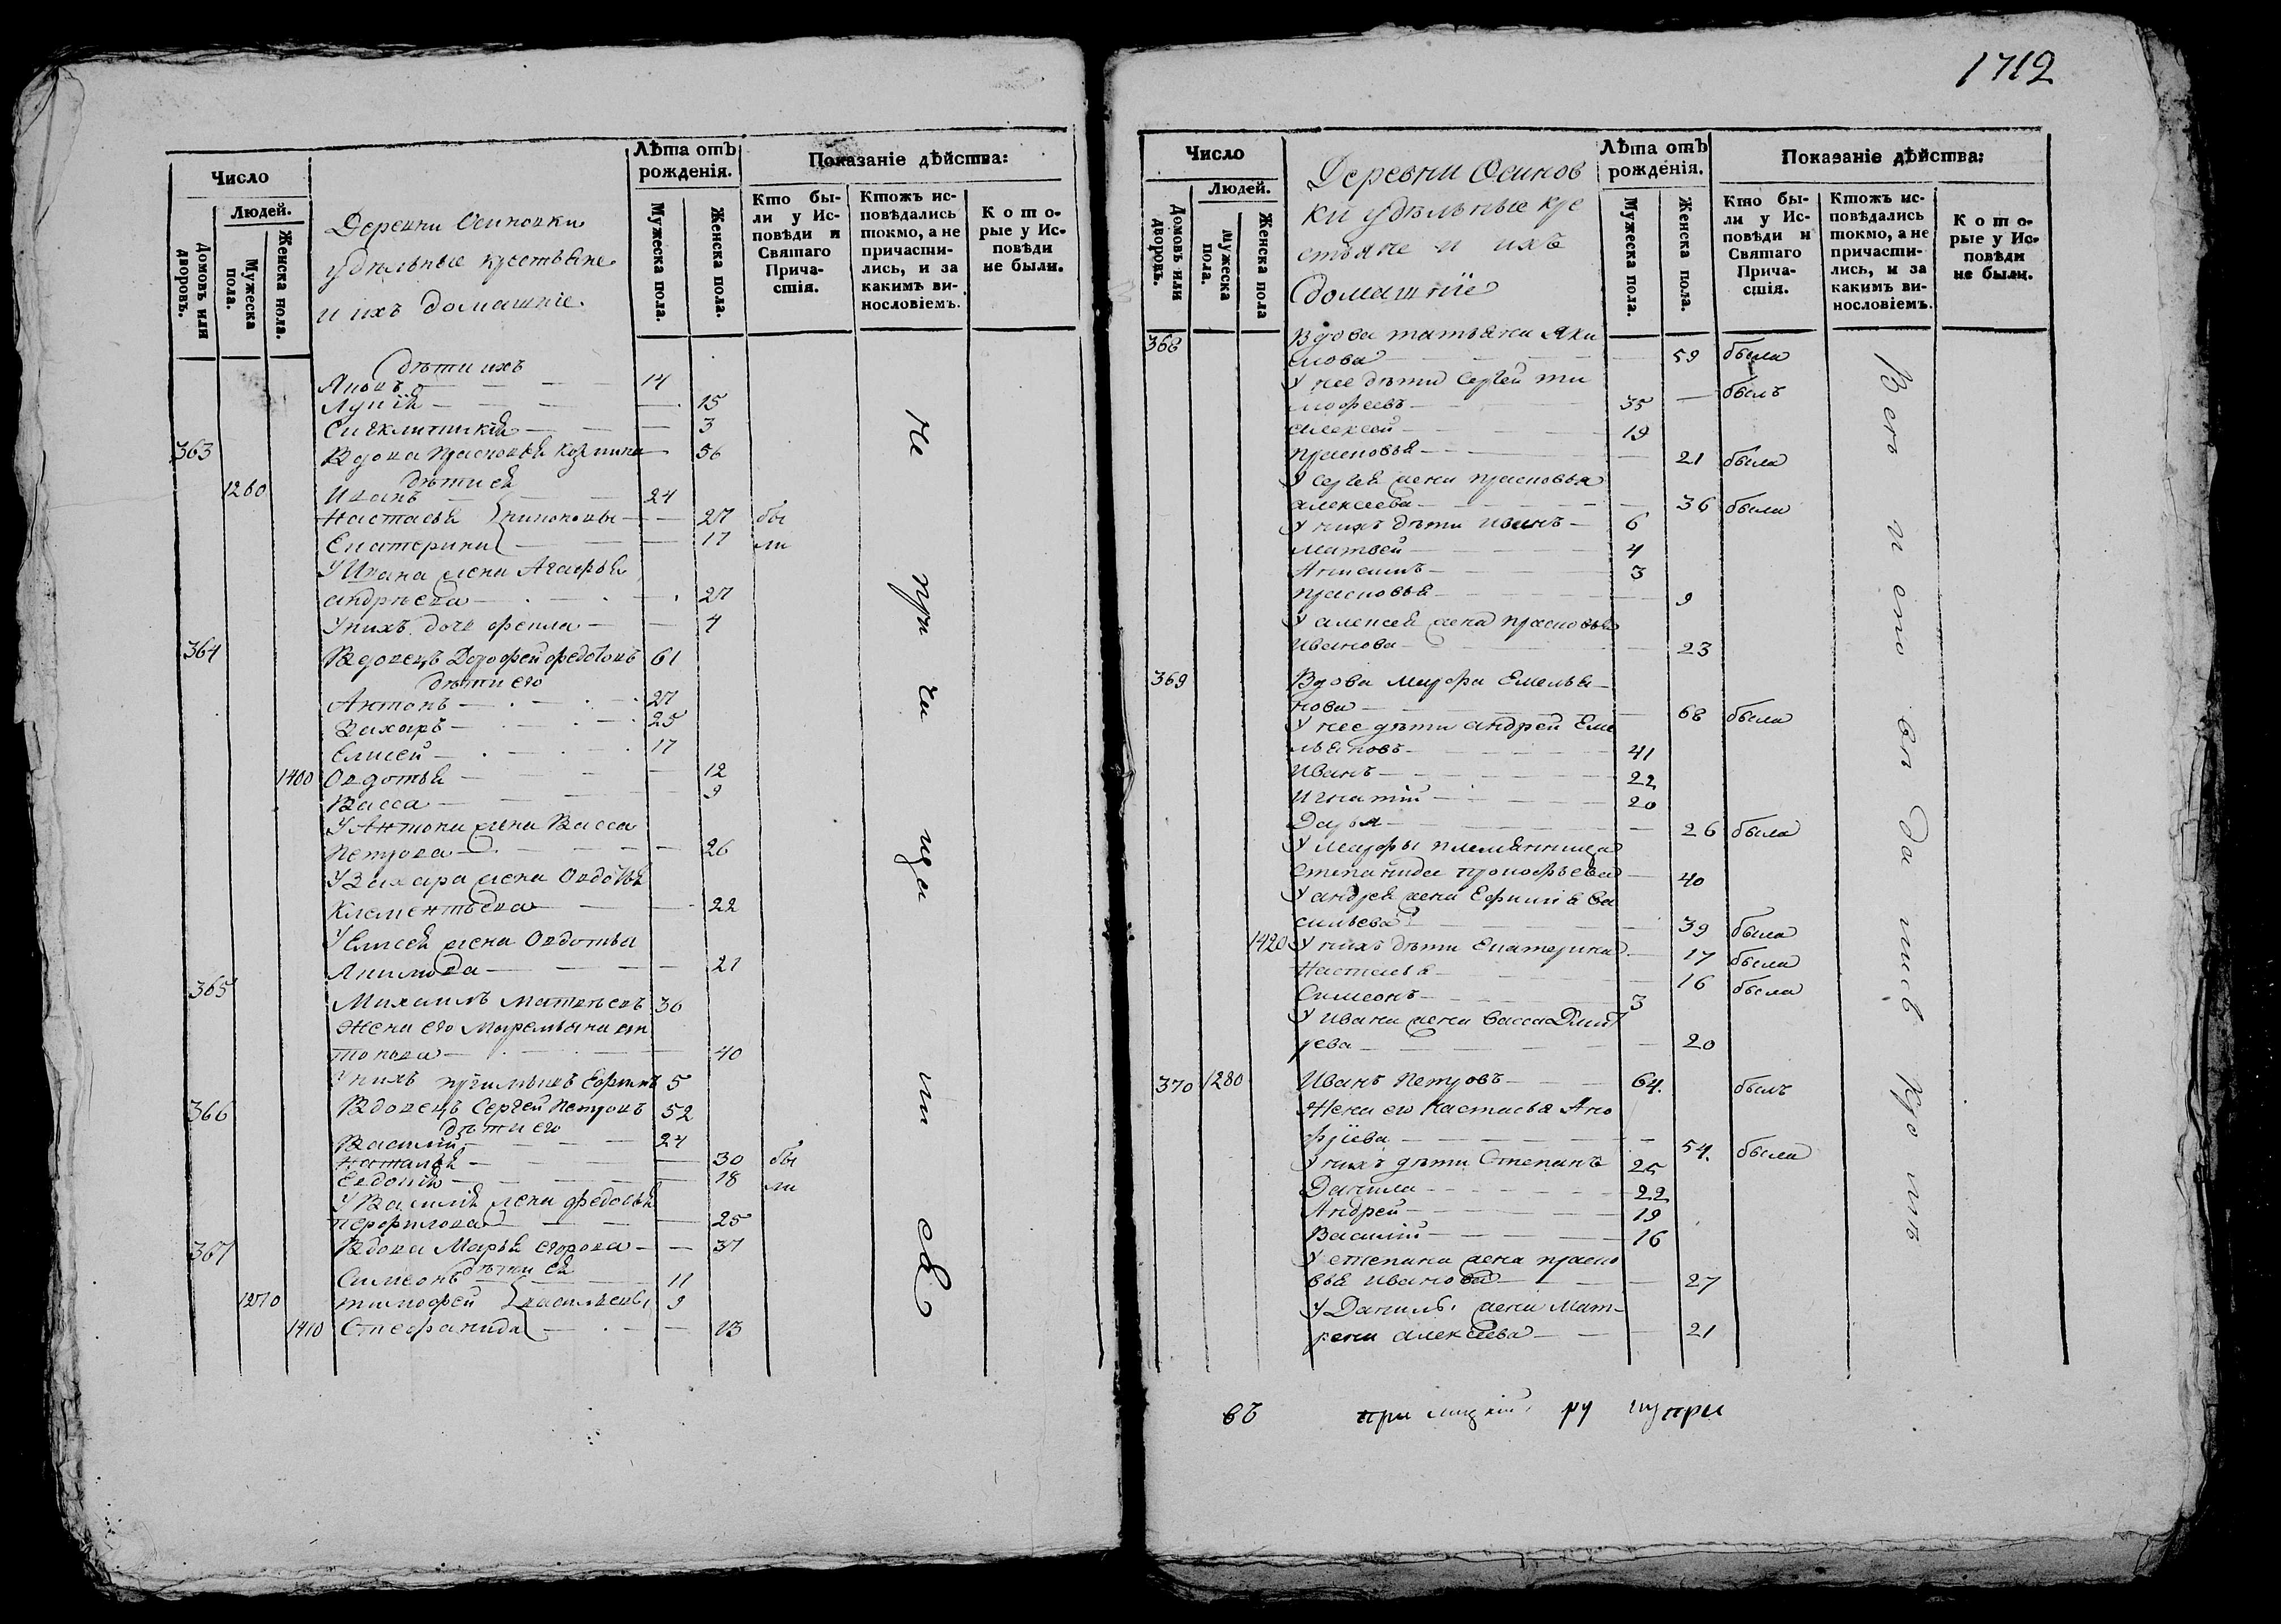 Число
Людей.
Домовъ или дворовъ.
Мужеска пола.
Женска пола.
Деревни Осиновки
удѣльные крестьяне
и ихъ домашніе
Лѣта отъ рожденія.
Мужеска пола.
Женска пола.
Показаніе дѣйства:
Кто были у Исповѣди и Святаго Причастія.
Ктожъ исповѣдались токмо, а не причастились, и за какимъ винословіемъ.
Которые у Исповѣди не были.
дѣти ихъ
14
15
3
363 Вдова Прасковья Козмина 56
дѣти ея
1260 Иванъ 24
Настасья 27 бы
Екатерина 17 ли
У Ивана жена Агафья
андрѣева 27
У нихъ дочь фекла 4
364 Вдовецъ Дорофей федотовъ 61
дѣти его
Антонъ 27
Захаръ 25
Елисей 17
1400 Овдотья 12
Васса 9
У Антона жена Васса
Петрова 26
У Захара жена Овдотья
Клементьева 22
У Елисея жена Овдотья
Якимова 21
365 Михаилъ матвѣевъ 30
Жена его Маремьяна ан
тонова 40
У нихъ 5
366 Вдовецъ Сергей Петровъ 52
дѣти его
Василій 24
Наталья 30 бы
Евдокія 18 ли
У Василія жена федосья
перфилова 25
367 Вдова Марья егорова 37
дѣти ея
Симеонъ 11
1270 тимофей васильевы 9
1410 Стефанида 13
не при ча ща ли ся
1712
Число
Людей.
Домовъ или дворовъ.
Мужеска пола.
Женска пола
Деревни Осинов
ки удѣльные кре
стьяне и ихъ
домашніе
Лѣта отъ рожденія.
Мужеска пола.
Женска пола.
Показаніе дѣйства:
Кто были у Исповѣди и Святаго Причастія.
Ктожъ исповѣдались токмо, а не причастились, и за какимъ винословіемъ.
Которые у Исповѣди не были.
368 Вдова татьяна Яки
мова 59 была
У нее дѣти Сергей ти
мофеевъ 35 былъ
алексей 19
прасковья 21 была
У сергея жена прасковья
алексеева 36 была
У нихъ дѣти иванъ 6
матвей 4
3
прасковья 9
У алексея жена прасковья
Иванова 23
369 Вдова Мавра Емелья
нова 68 была
У нее дѣти андрей Еме
льяновъ 41
Иванъ 22
Игнатій 20
Дарья 26 была
У мавры племянница
степанида прокофьева 40
У андрея жена Ефимія Ва
сильева 39 была
1420 У нихъ дѣти Екатерина 17 была
Настасья 16 была
Симеонъ 3
У ивана жена васса Дмит
рева 20
370 1280 Иванъ Петровъ 64. былъ
Жена его Настасья Ано
фріева 54. была
У нихъ дѣти Степанъ 25
Данила 22
Андрей 19
Василій 16
У степана жена праско
вья иванова 27
У Данилы жена Мат-
рена алексеева 21
въ при ру при